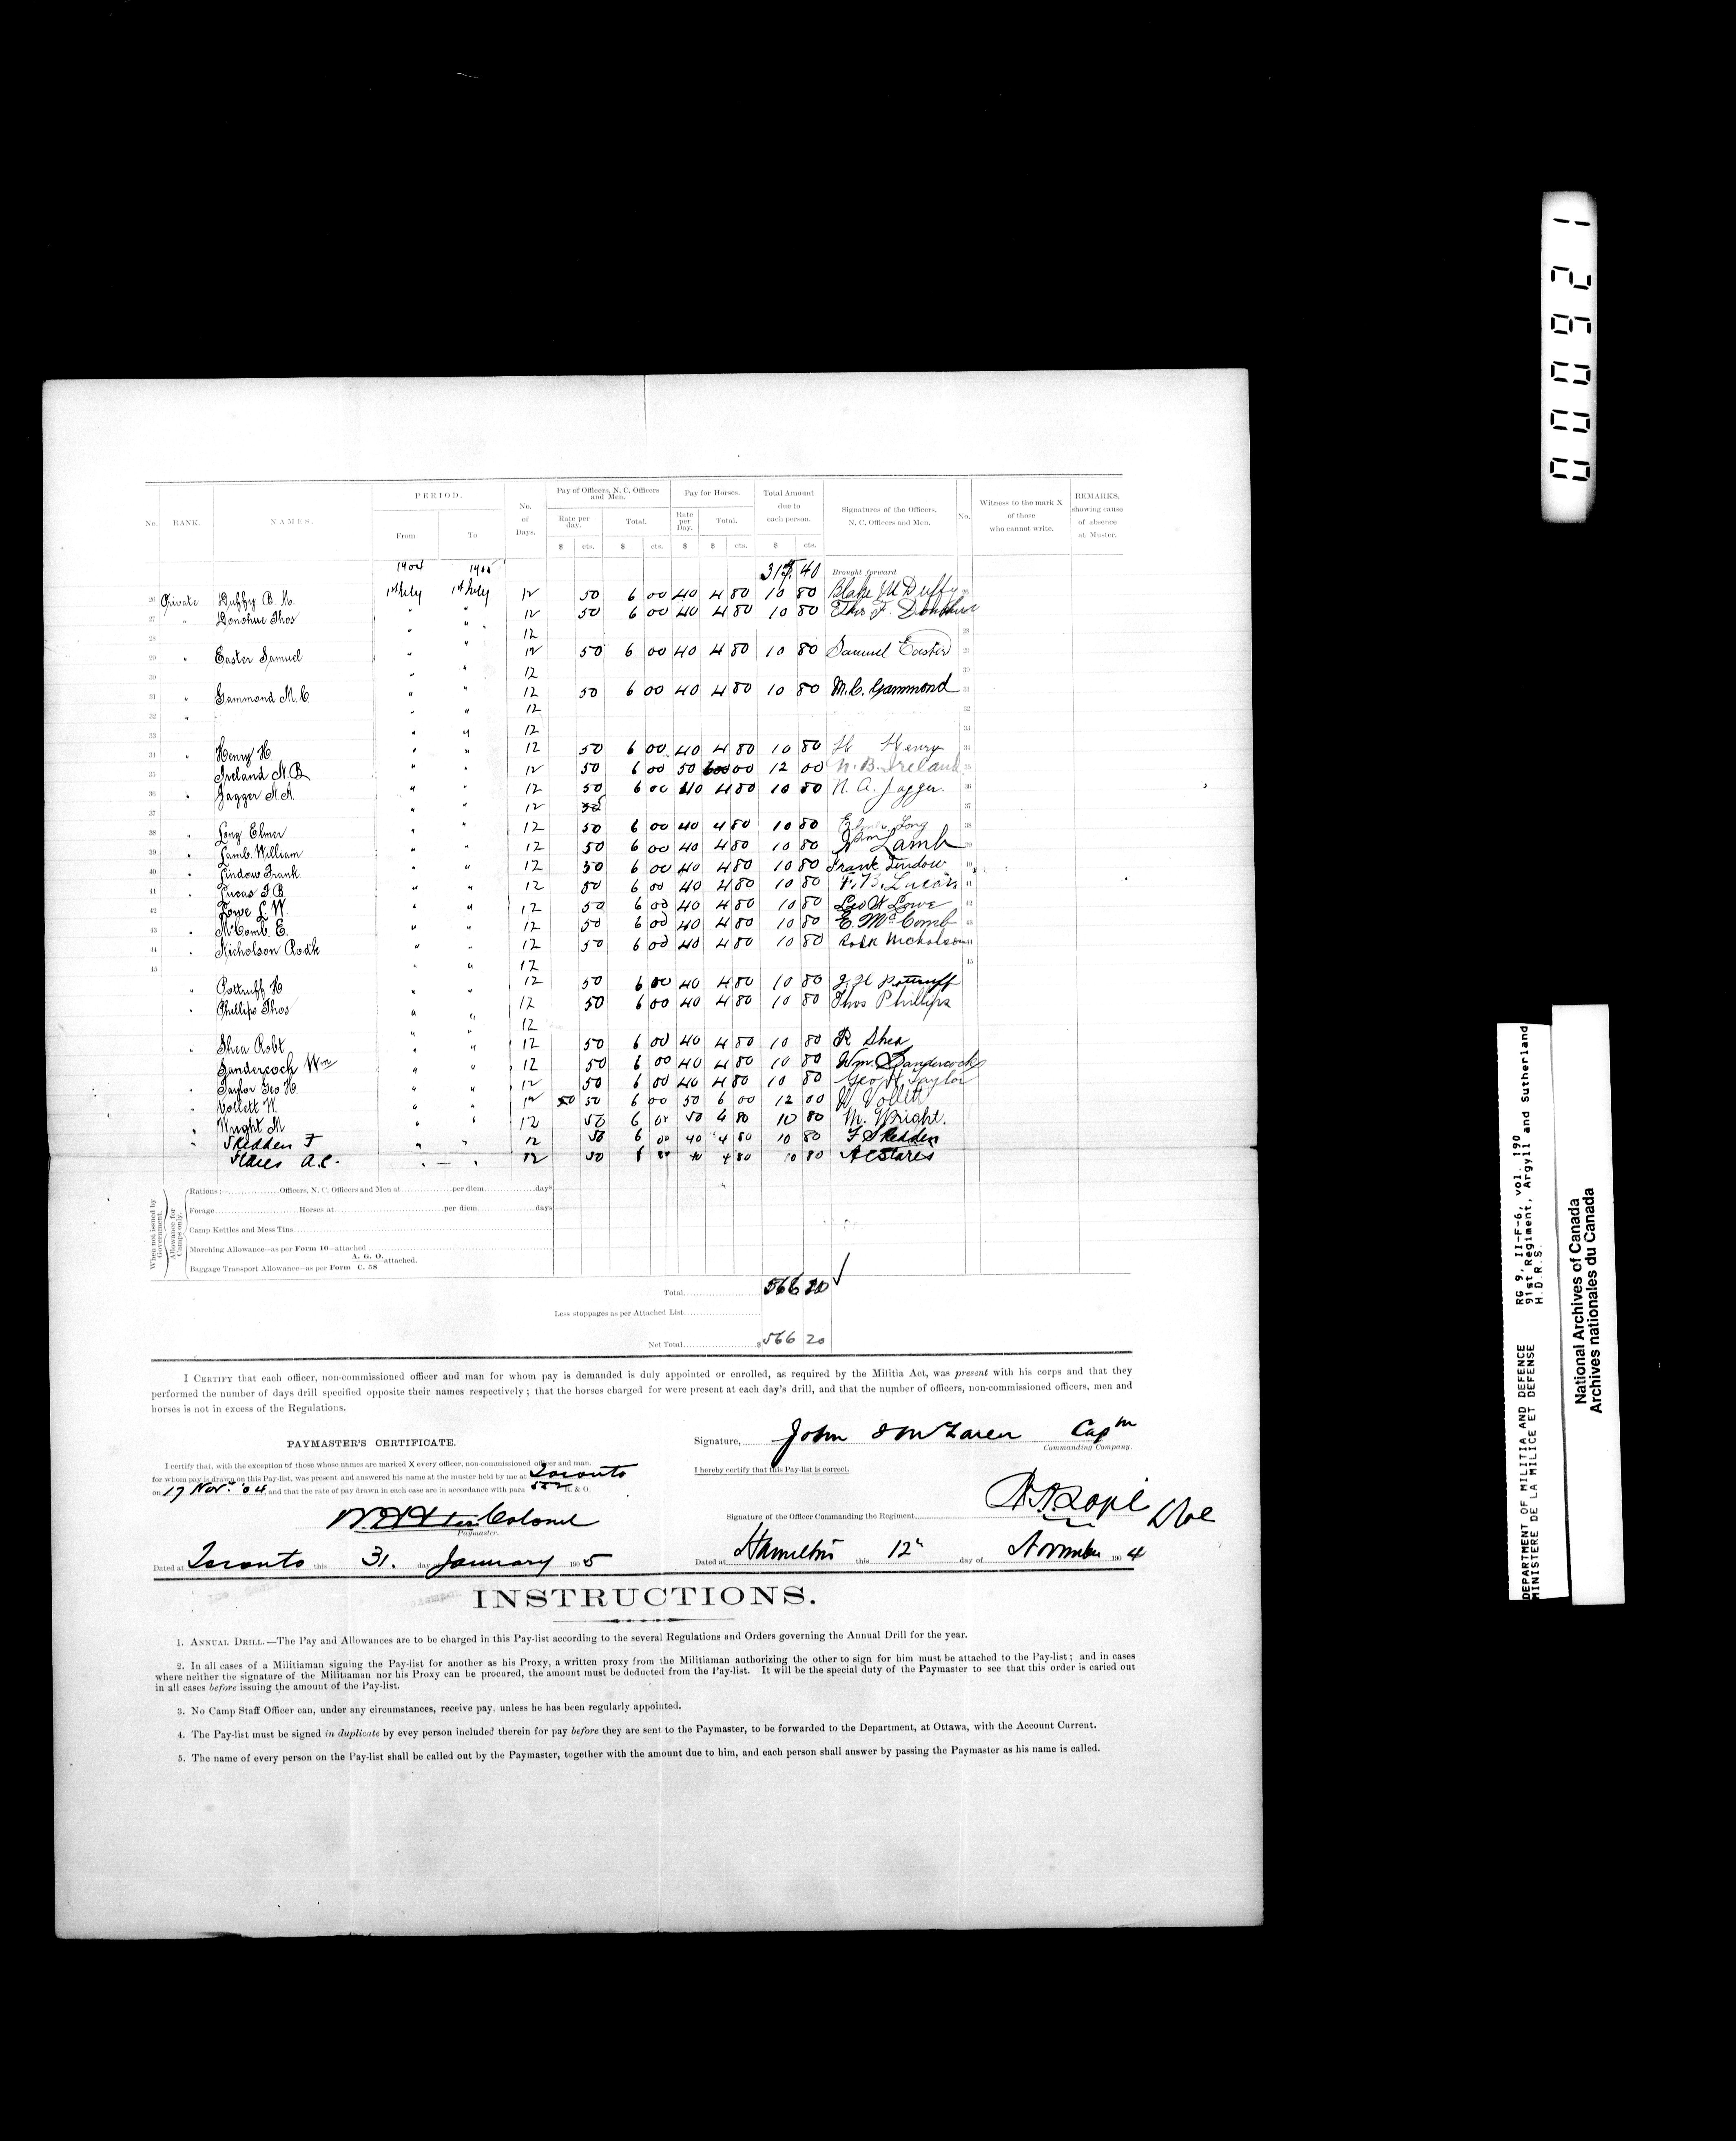 No. RANK. NAMES. PERIOD. From To No. of Days. Pay of Officers, N. C. Officers and Men. Rate per day. $ cts. Total. $ cts. Pay for Horses. Rate per Day. $ Total. $ cts. Total Amount due to each person. $ cts. Signatures of the Officers, N. C. Officers and Men. No. Witness to the mark X of those who cannot write. REMARKS, showing cause of absence at Muster.
1904 1905 40 Brought forward
26 Private Duffy B. M. 1st July 1st July 12 50 6 00 40 4 80 10 80 Blake M Duffy 26
27 " Donohue Thos " " 12 50 6 00 40 4 80 10 80 Thos F. Donohue
28 " " 12 28
29 " Easter Samuel " " 12 50 6 00 40 4 80 10 80 Samuel Easter 29
30 " " 12 30
31 " Gammond M. C. " " 12 50 6 00 40 4 80 10 80 M. C. Gammond 31
32 " " " 12 32
33 " " 12 33
34 " Henry H. " " 12 50 6 00 40 4 80 10 80 H Henry 34
35 Ireland N. B. " " 12 50 6 00 50 00 12 00 N. B. Ireland 35
36 " Jagger N. A. " " 12 50 6 00 40 4 80 10 80 N. A. Jagger. 36
37 " " 12 37
38 " Long Elmer " " 12 50 6 00 40 4 80 10 80 Long 38
39 " Lamb William " " 12 50 6 00 40 4 80 10 80 Wm Lamb 39
40 " Lindow Frank " " 12 50 6 00 40 4 80 10 80 Frank Lindow 40
41 " Lucas F. B. " " 12 50 6 00 40 4 80 10 80 F. B. Lucas 41
42 " Lowe L. W. " " 12 50 6 00 40 4 80 10 80 Lowe 42
43 " McComb. E. " " 12 50 6 00 40 4 80 10 80 E. McComb 43
44 " Nicholson Rodk " " 12 50 6 00 40 4 80 10 80 Rodk Nicholson 44
45 " " 12 45
" Pottruff H " " 12 50 6 00 40 4 80 10 80 J. H Pottruff
" Phillips Thos " " 12 50 6 00 40 4 80 10 80 Thos Phillips
" " 12
" Shea Robt " " 12 50 6 00 40 4 80 10 80 R Shea
Sandercock Wm " " 12 50 6 00 40 4 80 10 80 Wm. Sandercock
" Taylor Geo H. " " 12 50 6 00 40 4 80 10 80 Geo H Taylor
" Vollett W. " " 12 50 50 6 00 50 6 00 12 00 W Vollett
" Wright M " " 12 50 6 00 50 4 80 10 80 M. Wright.
" Skedden F " " 12 50 6 00 40 4 80 10 80 F Skedden
Stares A.C. " " 12 50 40 4 80 10 80 A C Stares
When not issued by Government.
Allowance for Camps only.
Rations:— Officers, N. C. Officers and Men at per diem days
Forage Horses at per diem days
Camp Kettles and Mess Tins
Marching Allowance—as per Form 10—attached
Baggage Transport Allowance—as per Form A. G. O. C. 58 attached.
Total 566 20
Less stoppages as per Attached List
Net Total $ 566 20
I CERTIFY that each officer, non-commissioned officer and man for whom pay is demanded is duly appointed or enrolled, as required by the Militia Act, was present with his corps and that they
performed the number of days drill specified opposite their names respectively; that the horses charged for were present at each day's drill, and that the number of officers, non-commissioned officers, men and
horses is not in excess of the Regulations.
Signature, John McLaren Captn
Commanding Company.
PAYMASTER'S CERTIFICATE.
I certify that, with the exception of those whose names are marked X every officer, non-commissioned officer and man,
for whom pay is drawn on this Pay-list, was present and answered his name at the muster held by me at Toronto
on 17 Nov. '04, and that the rate of pay drawn in each case are in accordance with para 552 R. & O.
Colonel
Paymaster.
Dated at Toronto this 31. day of January 1905
I hereby certify that this Pay-list is correct.
Signature of the Officer Commanding the Regiment
Dated at Hamilton this 12th day of November 1904
INSTRUCTIONS.
1. ANNUAL DRILL.—The Pay and Allowances are to be charged in this Pay-list according to the several Regulations and Orders governing the Annual Drill for the year.
2. In all cases of a Militiaman signing the Pay-list for another as his Proxy, a written proxy from the Militiaman authorizing the other to sign for him must be attached to the Pay-list; and in cases
where neither the signature of the Militiaman nor his Proxy can be procured, the amount must be deducted from the Pay-list. It will be the special duty of the Paymaster to see that this order is caried out
in all cases before issuing the amount of the Pay-list.
3. No Camp Staff Officer can, under any circumstances, receive pay, unless he has been regularly appointed.
4. The Pay-list must be signed in duplicate by evey person included therein for pay before they are sent to the Paymaster, to be forwarded to the Department, at Ottawa, with the Account Current.
5. The name of every person on the Pay-list shall be called out by the Paymaster, together with the amount due to him, and each person shall answer by passing the Paymaster as his name is called.
DEPARTMENT OF MILITIA AND DEFENCE RG 9, II-F-6, vol. 190
MINISTERE DE LA MILICE ET DEFENSE 91st Regiment, Argyll and Sutherland
H.D.R.S.
National Archives of Canada
Archives nationales du Canada